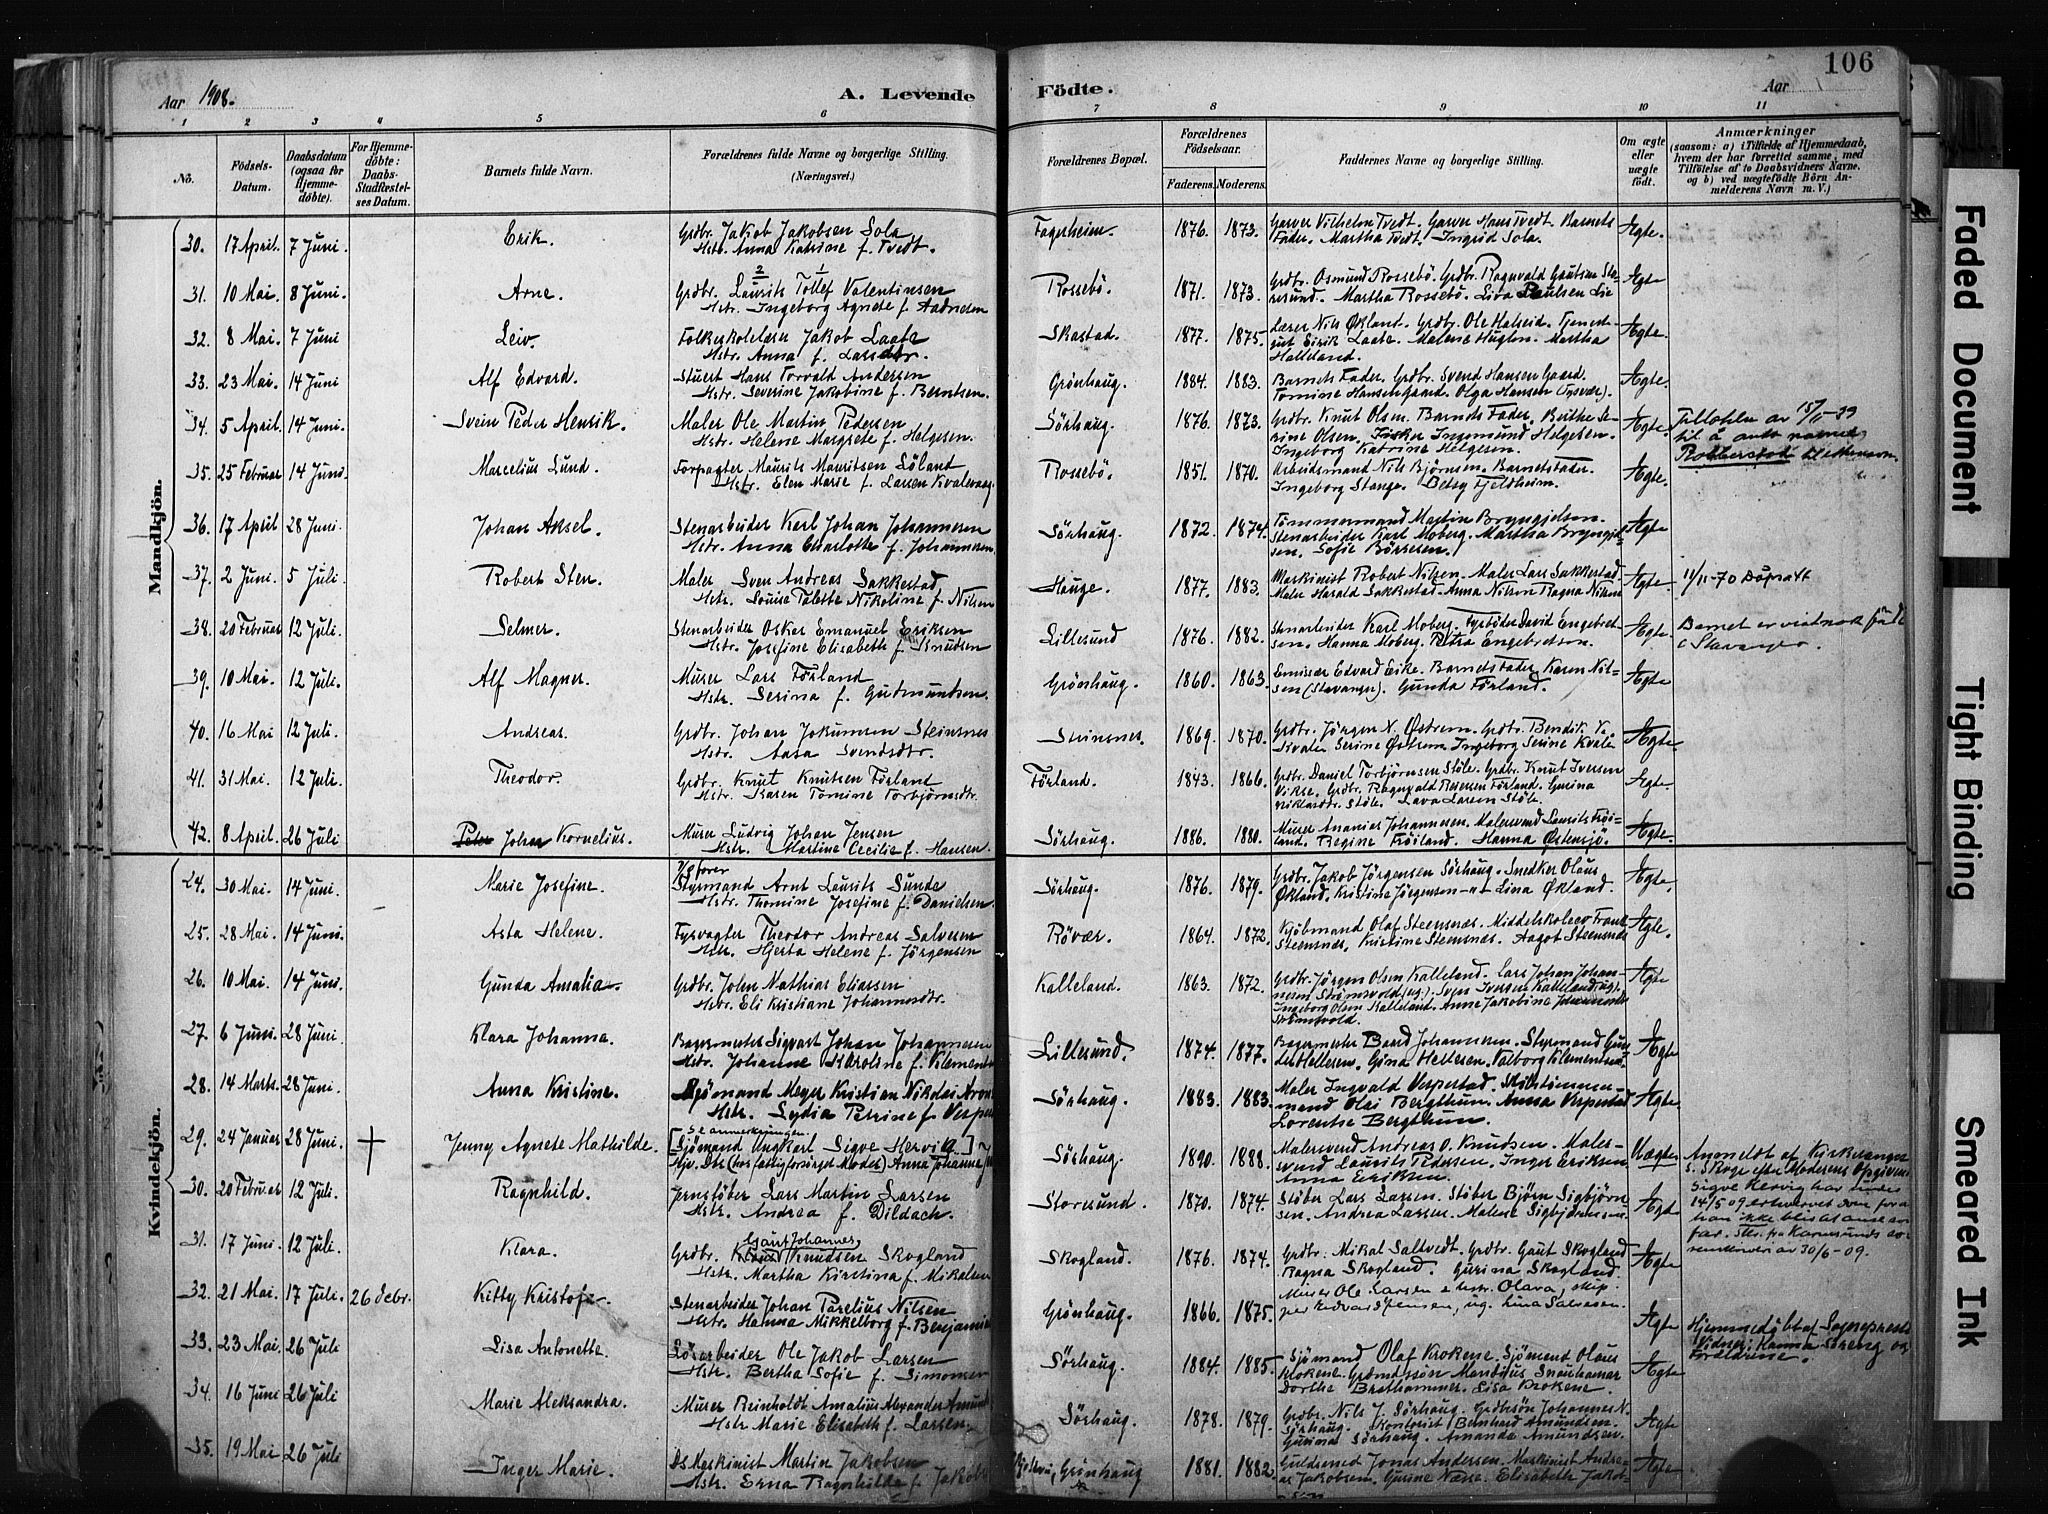 106
Aar 1908.
A. Levende Födte.
Aar
1 2 3 4 5 6 7 8 9 10 11
No.
Födsels-Datum.
Daabsdatum (ogsaa for Hjemme-døbte).
For Hjemme-døbte: Daabs-Stadfæstel-ses Datum.
Barnets fulde Navn.
Forældrenes fulde Navne og borgerlige Stilling.
(Næringsvei.)
Forældrenes Bopæl.
Forældrenes Födselsaar.
Faderens. Moderens.
Faddernes Navne og borgerlige Stilling.
Om ægte eller uægte födt.
Anmærkninger
(saasom: a) i Tilfælde af Hjemmedaab, hvem der har forrettet samme, med Tilföielse af to Daabsvidners Navne, og b) ved uægtefödte Börn An-melderens Navn m. V.)
Mandkjön.
30. 17 April. 7 Juni. Erik. Grdbr. Jakob Jakobsen Sola Hstr. Anna Katrine f. Tvedt. Fagerheim. 1876. 1873. Garver Vilhelm Tvedt. Garver Hans Tvedt. Barnets Fader. Martha Tvedt. Ingrid Sola. Ægte.
31. 10 Mai. 8 Juni. Arne. Grdbr. Laurits Tollef Valentinsen Hstr. Ingeborg Agnete f. Aadnesen Rossebö. 1871. 1873. Grdbr. Osmund Rossebö. Grdbr. Ragnvald Gautsen Storesund. Martha Rossebö. Liva Paulsen Ægte
32. 8 Mai. 7 Juni Leiv. Folkeskolelærer Jakob Laate Hstr. Anna f. Larsdtr. Skastad. 1877. 1875. Lærer Nils Økland. Grdbr. Ole Halseid. Tjenestgut Eirik Laate. Malene Huglen. Martha Halleland. Ægte.
33. 23 Mai. 14 Juni Alf Edvard. Stuert Hans Torvald Andersen Hstr. Severine Jakobine f. Berntsen. Grönhaug. 1884. 1883. Barnets Fader. Grdbr. Svend Hansen Gaard. Tomine Hansen Gaard. Olga Hansen (Tysvær). Ægte.
34. 5 April. 14 Juni. Svein Peder Henrik. Maler Ole Martin Pedersen Hstr. Helene Margrete f. Helgesen. Sörhaug. 1876. 1873. Grdbr. Knut Olsen. Barnets Fader. Berthe Serine Olsen. Fisker Ingemund Helgesen. Ingeborg Katrine Helgesen. Ægte. Tillatelse av 15/5-39 til å anta navnet Rokkerstad til etternavn.
35. 25 Februar 14 Juni. Marcelius Lund. Forpagter Maurits Mauritsen Löland Hstr. Elen Marie f. Larsen Kvalevaag. Rossebö. 1851. 1870. Arbeidsmand Nils Björnsen. Barnets Fader. Ingeborg Stange. Betsy Fjeldheim. Ægte.
36. 17 April 28 Juni. Johan Aksel. Stenarbeider Karl Johan Johannesen Hstr. Anna Charlotte f. Johannesen. Sörhaug. 1872. 1874. Tömmermand Martin Bryngjelsen. Stenarbeider Karl Moberg. Martha Bryngjelsen. Sofie Börresen. Ægte
37. 2 Juni. 5 Juli. Robert Sten. Maler Sven Andreas Sakkestad Hstr. Louise Talette Nikoline f. Nilsen Hauge. 1877. 1883. Maskinist Robert Nilsen. Maler Lars Sakkestad. Maler Harald Sakkestad. Anna Nilsen Ragna Nilsen Ægte. 11/11-70 Dåpsatt
38. 20 Februar 12 Juli. Selmer. Stenarbeider Oskar Emanuel Eriksen Hstr. Josefine Elisabeth f. Knudsen Lillesund 1876. 1882. Stenarbeider Karl Moberg. Fyrböder David Engebretsen. Hanna Moberg. Petra Engebretsen. Ægte. Barnet er vistnok födt i Stavanger.
39. 10 Mai. 12 Juli. Alf Magner. Murer Lars Förland Hstr. Serina f. Gudmundsen. Grönhaug. 1860. 1863. Emissær Edvard Eike. Barnets Fader. Karen Nilsen (Stavanger). Gunda Förland. Ægte
40. 16 Mai 12 Juli. Andreas. Grdbr. Johan Jokumsen Steinsnes Hstr. Aasa Svendsdtr. Steinsnes. 1869. 1870. Grdbr. Jörgen N. Østrem. Grdbr. Bendik K. Kvale. Serine Østrem Ingeborg Serine Kvale Ægte
41. 31 Mai. 12 Juli. Theodor. Grdbr. Knut Knutsen Förland Hstr. Karen Tomine Torbjörnsdtr. Förland. 1843. 1866. Grdbr. Daniel Torbjörnsen Stöle. Grdbr. Knut Iversen Vikse. Grdbr. Ragnvald Förland. Gurina Niklasdtr. Stöle. Lava Larsen Stöle. Ægte.
42. 8 April. 26 Juli Peter Johan Kornelius. Murer Ludvig Johan Jensen Hstr. Martine Cecilie f. Hansen. Sörhaug. 1886. 1880. Murer Ananias Johannesen. Malersvend Laurits Fröiland. Regine Fröiland. Hanna Østensjö. Ægte
Kvindekjön.
24. 30 Mai. 14 Juni. Marie Josefine. Styrmand Arnt Laurits Sunde Hstr. Thomine Josefine f. Danielsen. Sörhaug. 1876. 1879. Grdbr. Jakob Jörgensen Sörhaug. Snedker Olaus Økland. Kristine Jörgensen. Lina Økland. Ægte.
25. 28 Mai. 14 Juni. Asta Helene. Fyrvagter Theodor Andreas Salvesen Hstr. Hjerta Helene f. Jörgensen Rövær. 1864. 1872. Kjöbmand Olaf Steensnæs. Middelskoleelev Frank Steensnæs. Kristine Steensnæs. Aagot Steensnæs Ægte.
26. 10 Mai. 14 Juni. Gunda Amalia. Grdbr. John Mathias Eliassen Hstr. Eli Kristiane Johannesdtr. Kalleland. 1863. 1872. Grdbr. Jörgen Olsen Kalleland. Lars Johan Johannesen Strömsvold (ug). Sven Iversen Kalleland (ug). Ingeborg Olsen Kalleland. Anne Jakobine Johannesen Strömsvold. Ægte
27. 6 Juni. 28 Juni. Klara Johanna. Bagermester Sigvart Johan Johannesen Hstr. Johanne Karoline f. Klements Lillesund. 1874. 1877. Bagermester Baard Johannesen. Styrmand Hellesen. Gina Hellesen. Valborg Klementsen. Ægte
28. 14 Marts. 28 Juni. Anna Kristine. Sjömand Meyer Kristian Nikolai Hstr. Lydia Petrine f. Vespe Sörhaug. 1883. 1883. Maler Ingvald Vespestad. Skibstömmermand Olai Bergthun. Anna Vespestad Lorentse Bergthun. Ægte
29. 24 Januar 28 Juni. † Jenny Agnete Mathilde. se anmerkningen. [Sjömand Ungkarl Sigve Hervig] Hjv. Dtr. (hos fattigforsörget Moder) Anna Johanne Sörhaug. 1890. 1888. Malersvend Andreas O. Knudsen. Malersvend Laurits Pedersen. Inger Eriksen. Anna Eriksen. Uægte Anmeldt af Kirkesanger S. Skoge efter Moderens Opgivende Sigve Hervig har under 14/5 09 erhvervet Dom for at han ikke blir at anse som far.
30. 20 Februar 12 Juli. Ragnhild. Jernstöber Lars Martin Larsen Hstr. Andrea f. Dildach. Storesund. 1870. 1874. Stöber Lars Larsen. Stöber Björn Sigbjörnsen. Andrea Larsen. Malene Sigbjörnsen. Ægte
31. 17 Juni. 12 Juli. Klara. Grdbr. Gaut Johannes Knudsen Skogland Hstr. Martha Kirstina f. Mikalsen Skogland. 1876. 1874. Grdbr. Mikal Saltvedt. Grdbr. Gaut Skogland Ragna Skogland. Gurina Skogland. Ægte
32. 21 Mai. 17 Juli. 26 Kitty Kristofa. Stenarbeider Johan Parelius Nilsen Hstr. Hanna Mikkelborg f. Benjamin Grönhaug. 1866. 1875. Murer Ole Larsen & hstr. Olava, skipper Edvard Jensen, ug. Lina Salvesen. Ægte Hjemmedöbt af Sognepresten Vidner: Hanna Söreng og Forældrene.
33. 23 Mai. 26 Juli Lisa Antonette. Lösarbeider Ole Jakob Larsen Hstr. Bertha Sofie f. Simonsen Sörhaug. 1884. 1885. Sjömand Olaf Krokene. Sjömand Olaus Krokene. Dorthe Brathammer. Lisa Krokene. Ægte
34. 16 Juni 26 Juli Marie Aleksandra. Murer Reinholdt Amalius Alexander Amund Hstr. Marie Elisabeth f. Larsen. Sörhaug. 1878. 1879. Grdbr. Nils J. Sörhaug. Grdbrsön Johannes N. Sörhaug. Kontorist Bernhard Amundsen. Gurina Sörhaug. Amanda Amundsen. Ægte
35. 19 Mai 26 Juli Inger Marie. Ds Maskinist Martin Jakobsen Hstr. Erna Ragnhilde f. Jakobs Grönhaug 1881. 1882. Guldsmed Jonas Andersen. Maskinist Andreas Jakobsen. Gurine Næsse. Elisabeth Jakobsen Ægte
Faded Document
Tight Binding
Smeared Ink